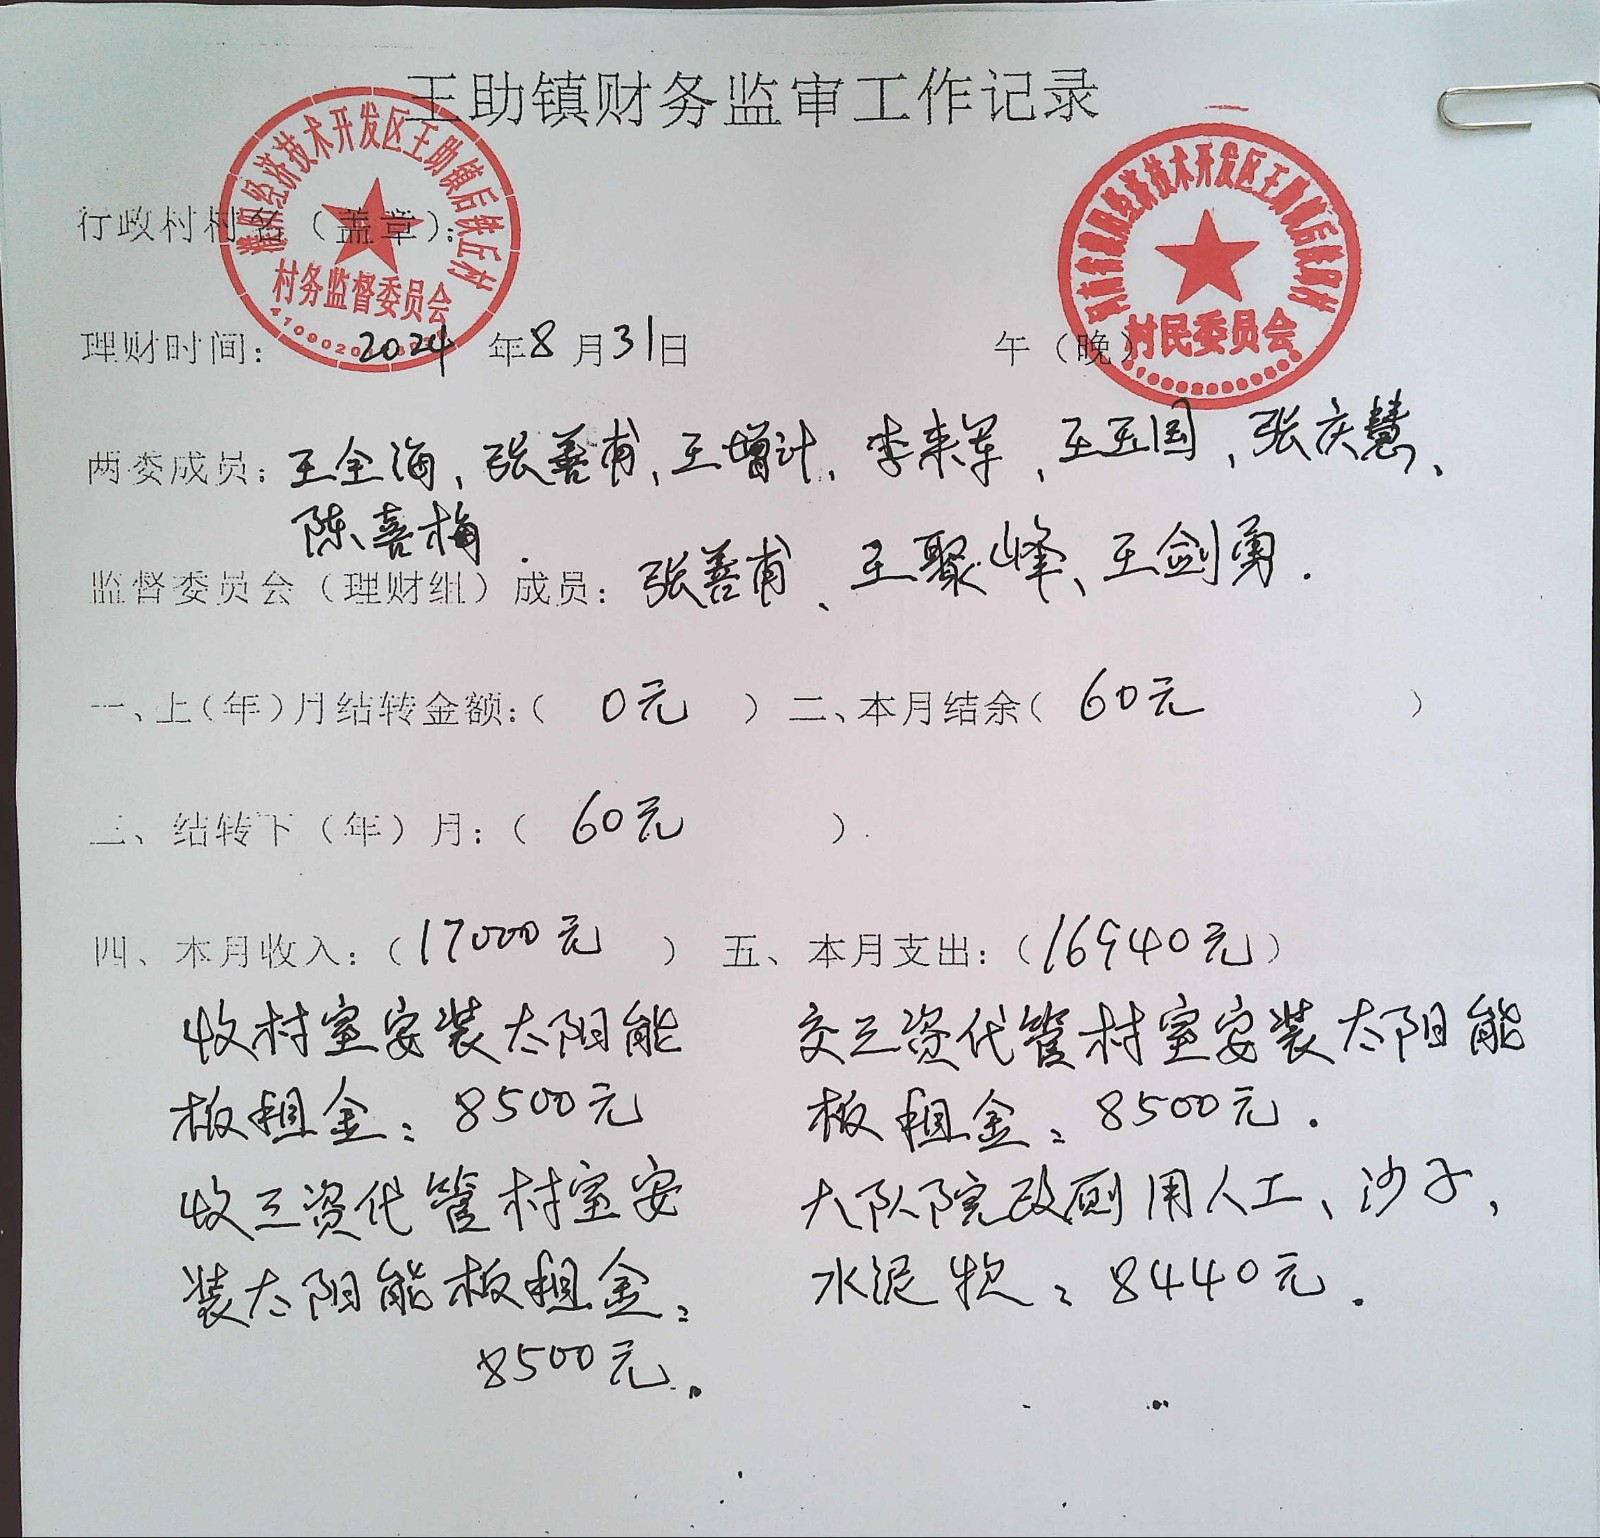 王助镇财务监审工作记录
濮阳经济技术开发区王助镇后铁丘村
村务监督委员会
村民委员会
行政村村名（盖章）：
理财时间： 2024 年 8 月 31 日 午（晚）
两委成员：王全海、张善甫、王增计、李来军、王玉国、张庆慧、
陈喜梅.
监督委员会（理财组）成员：张善甫、王聚峰、王剑勇.
一、上（年）月结转金额：（ 0元 ）二、本月结余（ 60元 ）
三、结转下（年）月：（ 60元 ）.
四、本月收入：（17000元 ） 五、本月支出：（16940元）
收村室安装太阳能 交三资代管村室安装太阳能
板租金：8500元 板租金：8500元.
收三资代管村室安 大队院改厕用人工、沙子、
装太阳能板租金： 水泥款：8440元.
8500元.